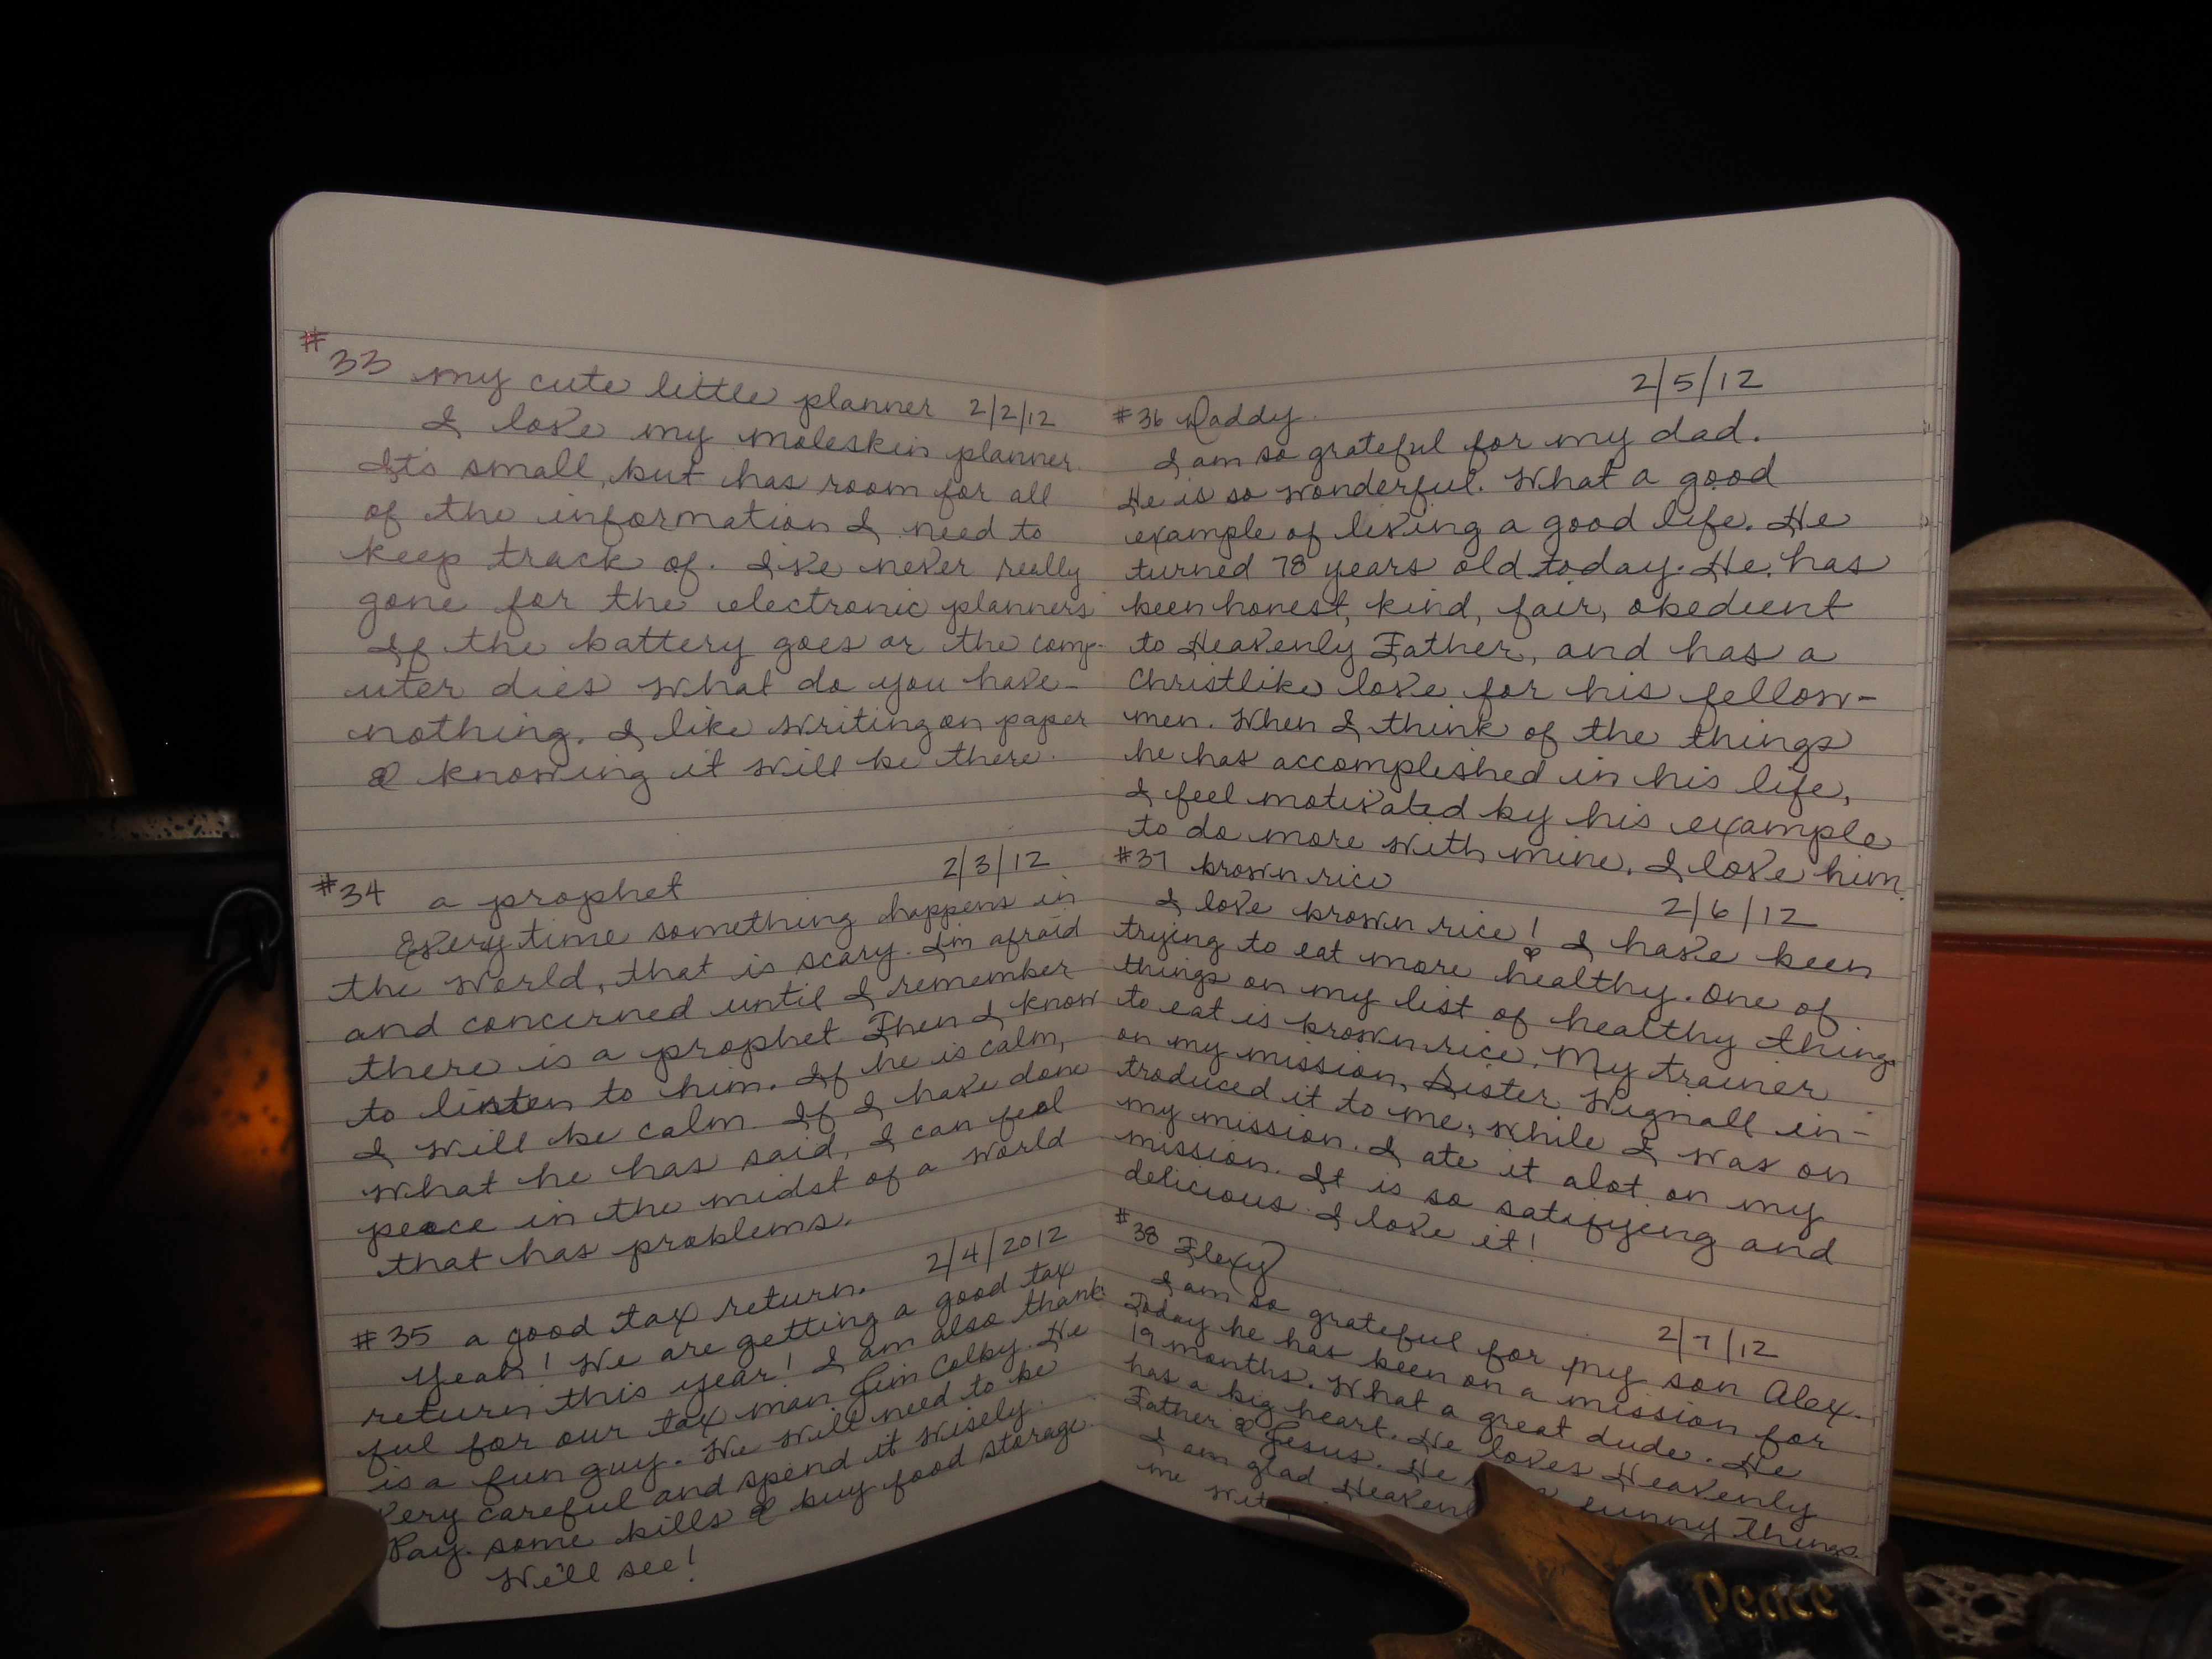 #33 my cute little planner 2/2/12
I love my moleskin planner.
It's small, but has room for all
of the information I need to
keep track of. I've never really
gone for the electronic planners
If the battery goes or the comp-
uter dies what do you have-
nothing. I like writing on paper
& knowing it will be there.
#34 a prophet 2/3/12
Every time something happens in
the world, that is scary. I'm afraid
and concerned until I remember
there is a prophet. Then I know
to listen to him. If he is calm,
I will be calm. If I have done
what he has said, I can feel
peace in the midst of a world
that has problems.
#35 a good tax return. 2/4/2012
Yeah! We are getting a good tax
return this year! I am also thank
ful for our tax man Jim Colby. He
is a fun guy. We will need to be
very careful and spend it wisely.
Pay some bills & buy food storage.
We'll see!
2/5/12
#36 Daddy.
I am so grateful for my dad.
He is so wonderful. What a good
example of living a good life. He
turned 78 years old today. He has
been honest, kind, fair, obedient
to Heavenly Father, and has a
Christlike love for his fellow-
men. When I think of the things
he has accomplished in his life,
I feel motivated by his example
to do more with mine. I love him.
#37 brown rice 2/6/12
I love brown rice! I have been
trying to eat more healthy. One of
things on my list of healthy things
to eat is brown rice. My trainer
on my mission, Sister Wignall in-
troduced it to me, while I was on
my mission. I ate it alot on my
mission. It is so satifying and
delicious. I love it!
#38 Flexy 2/7/12
I am so grateful for my son Alex.
Today he has been on a mission for
19 months. What a great dude. He
has a big heart. He loves Heavenly
Father & Jesus. He funny things
I am glad Heavenl
me
Peace